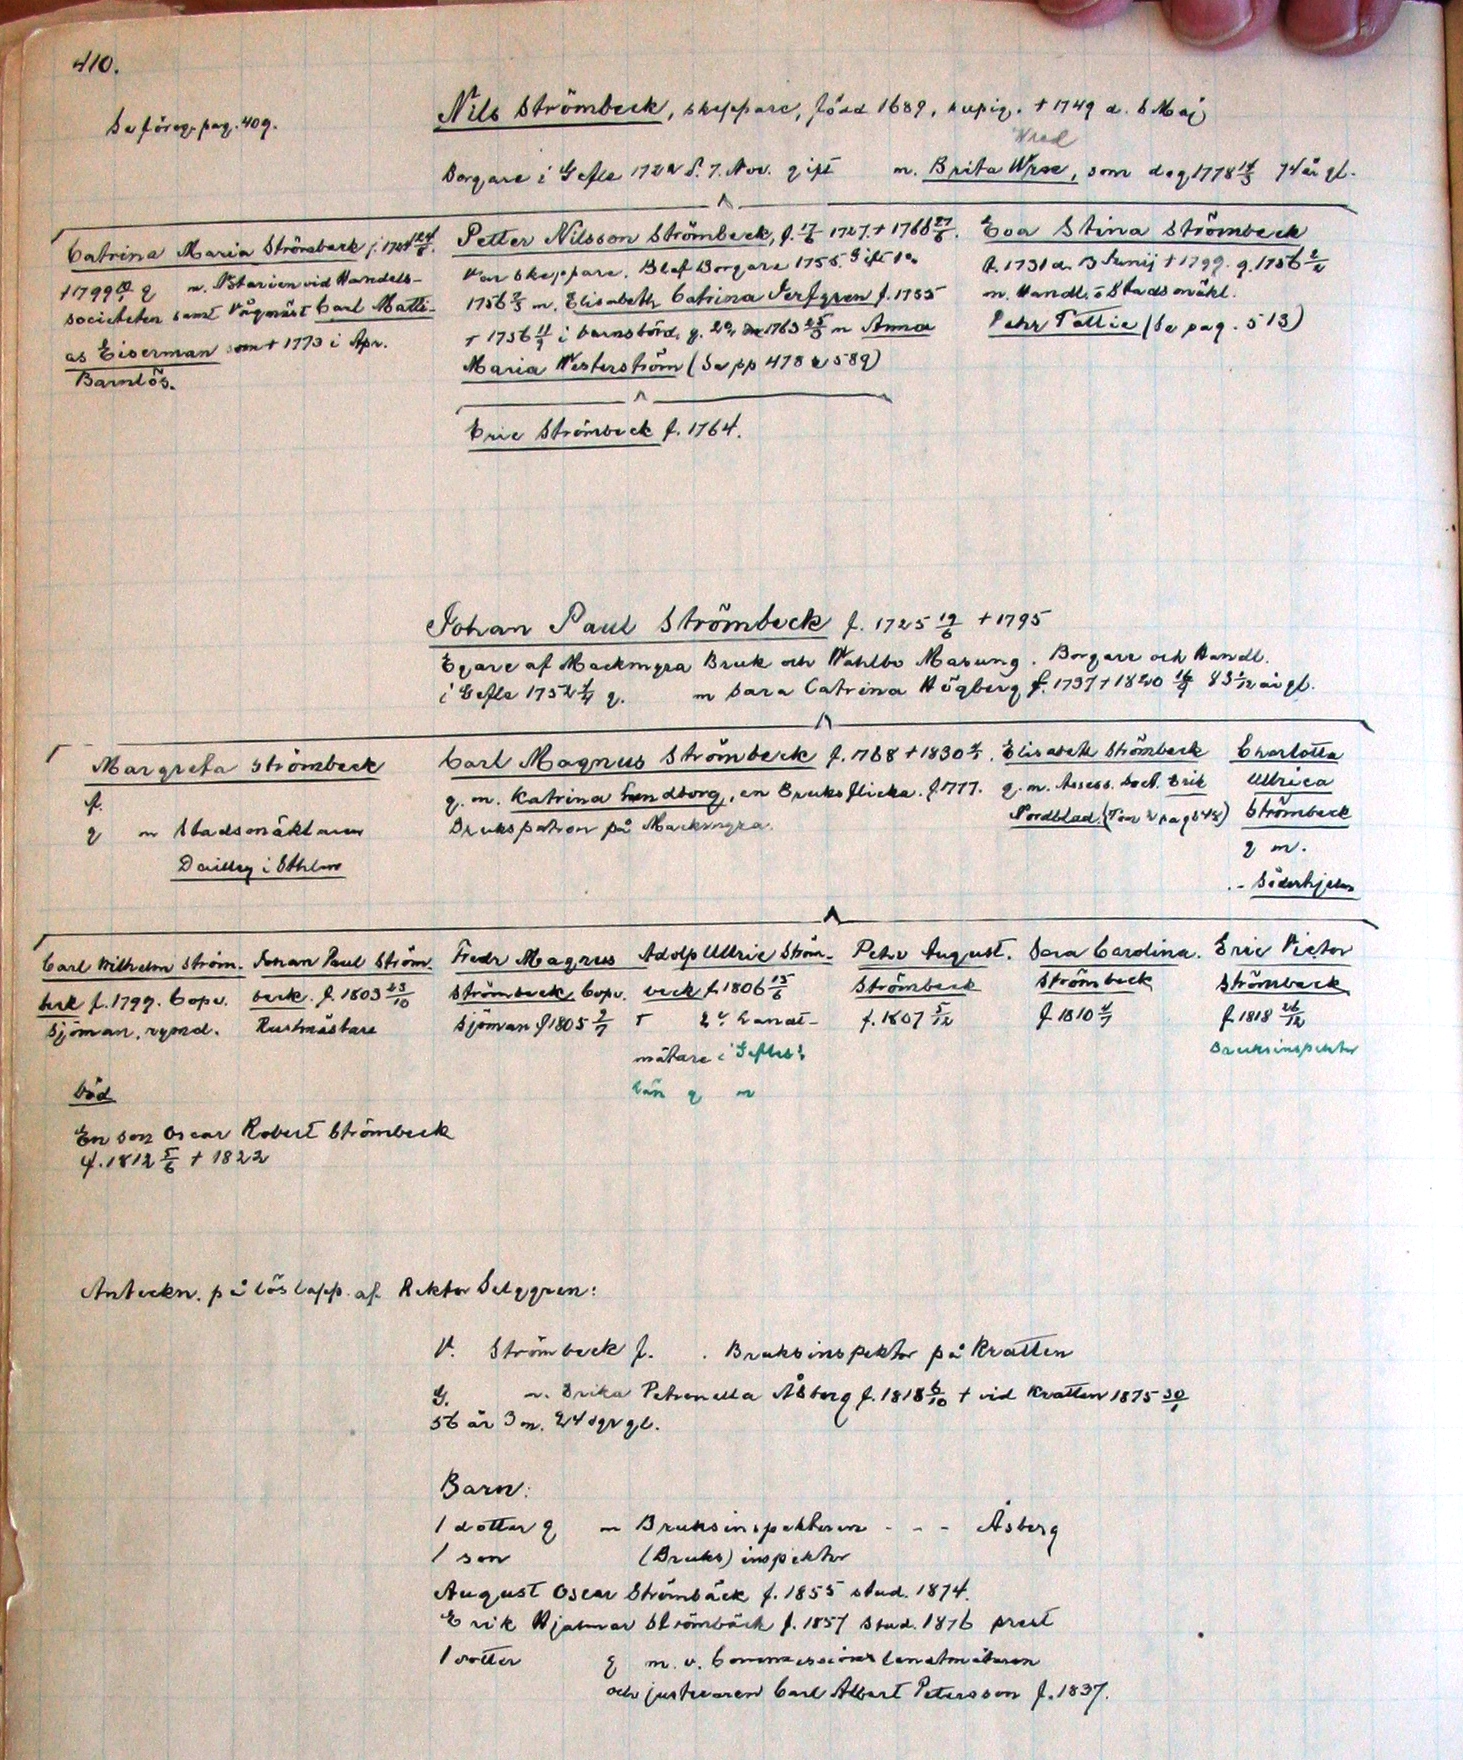 410.
Se föreg. pag. 409.
Nils Strömbeck, skeppare, född 1689, † 1749 d. 8 Maj
Wred
Borgare i Gefle 1722 d. 7. Nov. gift m. Brita Wrse, som dog 1778 74 år gl.
Catrina Maria Strömbeck f. 1724
† 1799 g m. Notarien vid Handels-
societeten samt Vågmäst Carl Matti-
as Eiserman som † 1773 i Apr.
Barnlös.
Petter Nilsson Strömbeck, f. 17/6 1727. † 1768 27/6.
Var skeppare. Blef Borgare 1755. Gift 1o
1756 m. Elisabeth Catrina Jerfgren f. 1735
† 1756 i barnsbörd, g. 2o 1763 25/3 m Anna
Maria Westerström (Se pp 478 & 589)
Eric Strömbeck f. 1764.
Eva Stina Strömbeck
f. 1731 d. 13 Junij † 1799. g. 1756
m. Handl. o Stadsmäkl.
Pehr Tollie (Se pag. 513)
Johan Paul Strömbeck f. 1725 19/6 † 1795
Egare af Mackmyra Bruk och Wahlbo Masung. Borgare och Handl.
i Gefle 1752 g. m Sara Catrina Högberg f. 1737 † 1820 83 år gl.
Margreta Strömbeck
f.
g m Stadsmäklaren
Dailley i Sthlm
Carl Magnus Strömbeck f. 1768 † 1830
g. m. Katrina Sundborg, en Bruksflicka. f. 1777.
Brukspatron på Mackmyra.
Elisabeth Strömbeck
g. m. Assess. Doct. Erik
Nordblad. (Tom 2 pag 548)
Charlotta
Ullrica
Strömbeck
g m.
- Söderhjelm
Carl Wilhelm Ström-
beck f. 1799. Copv.
Sjöman, rymd.
Johan Paul Ström-
beck. f. 1803 23/10
Rustmästare
Fredr Magnus
Strömbeck, Copv.
Sjöman f 1805 2/7
Adolp Ullric Ström-
beck f. 1806 15/6
† 2e Landt-
mätare i Gefleb:s
län g m
Pehr August.
Strömbeck
f. 1807 5/12
Sara Carolina.
Strömbeck
f 1810
Eric Victor
Strömbeck
f. 1818 26/12
Bruksinspektor
Död
En son Oscar Robert Strömbeck
f. 1812 5/6 † 1822
Anteckn. på löslapp. af Rektor Selggren:
V. Strömbeck f. . Bruksinspektor på Kratten
G. m. Erika Petronella Åsberg f. 1818 6/10 † vid Kratten 1875 30/1
56 år 3 m. 24 dgr gl.
Barn:
1 dotter g m Bruksinspektoren - - - Åsberg
1 son (Bruks) inspektor
August Oscar Strömbäck f. 1855 stud. 1874.
Erik Hjalmar Strömbäck f. 1857 stud. 1876 prest
1 dotter g m. v. Commissionslandtmätaren
och justeraren Carl Albert Petersson f. 1837.